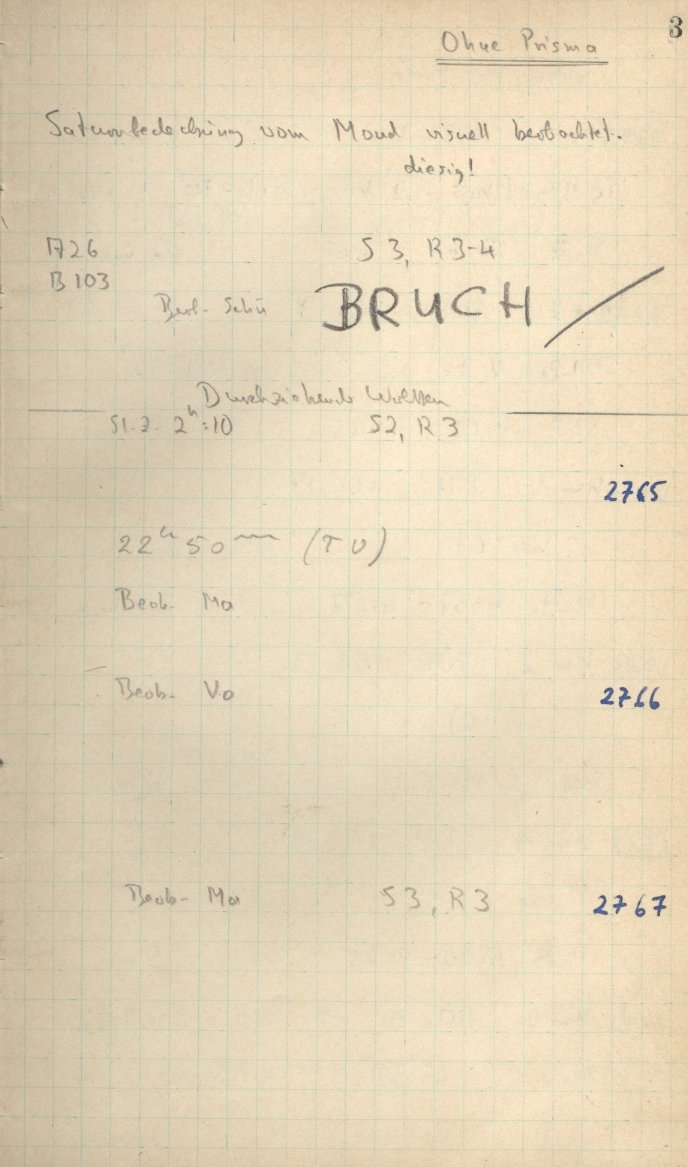 3
Ohne Prisma
Saturnbedeckung vom Mond visuell beobachtet.
diesig!
S 3, R 3-4
B 103
BRUCH /
Durchziehende Wolken
2ʰ:10 S2, R 3
2765
22ʰ 50ᵐ (TU)
Beob. Ma
Beob. Vo 2766
Beob- Ma S3, R3 2767